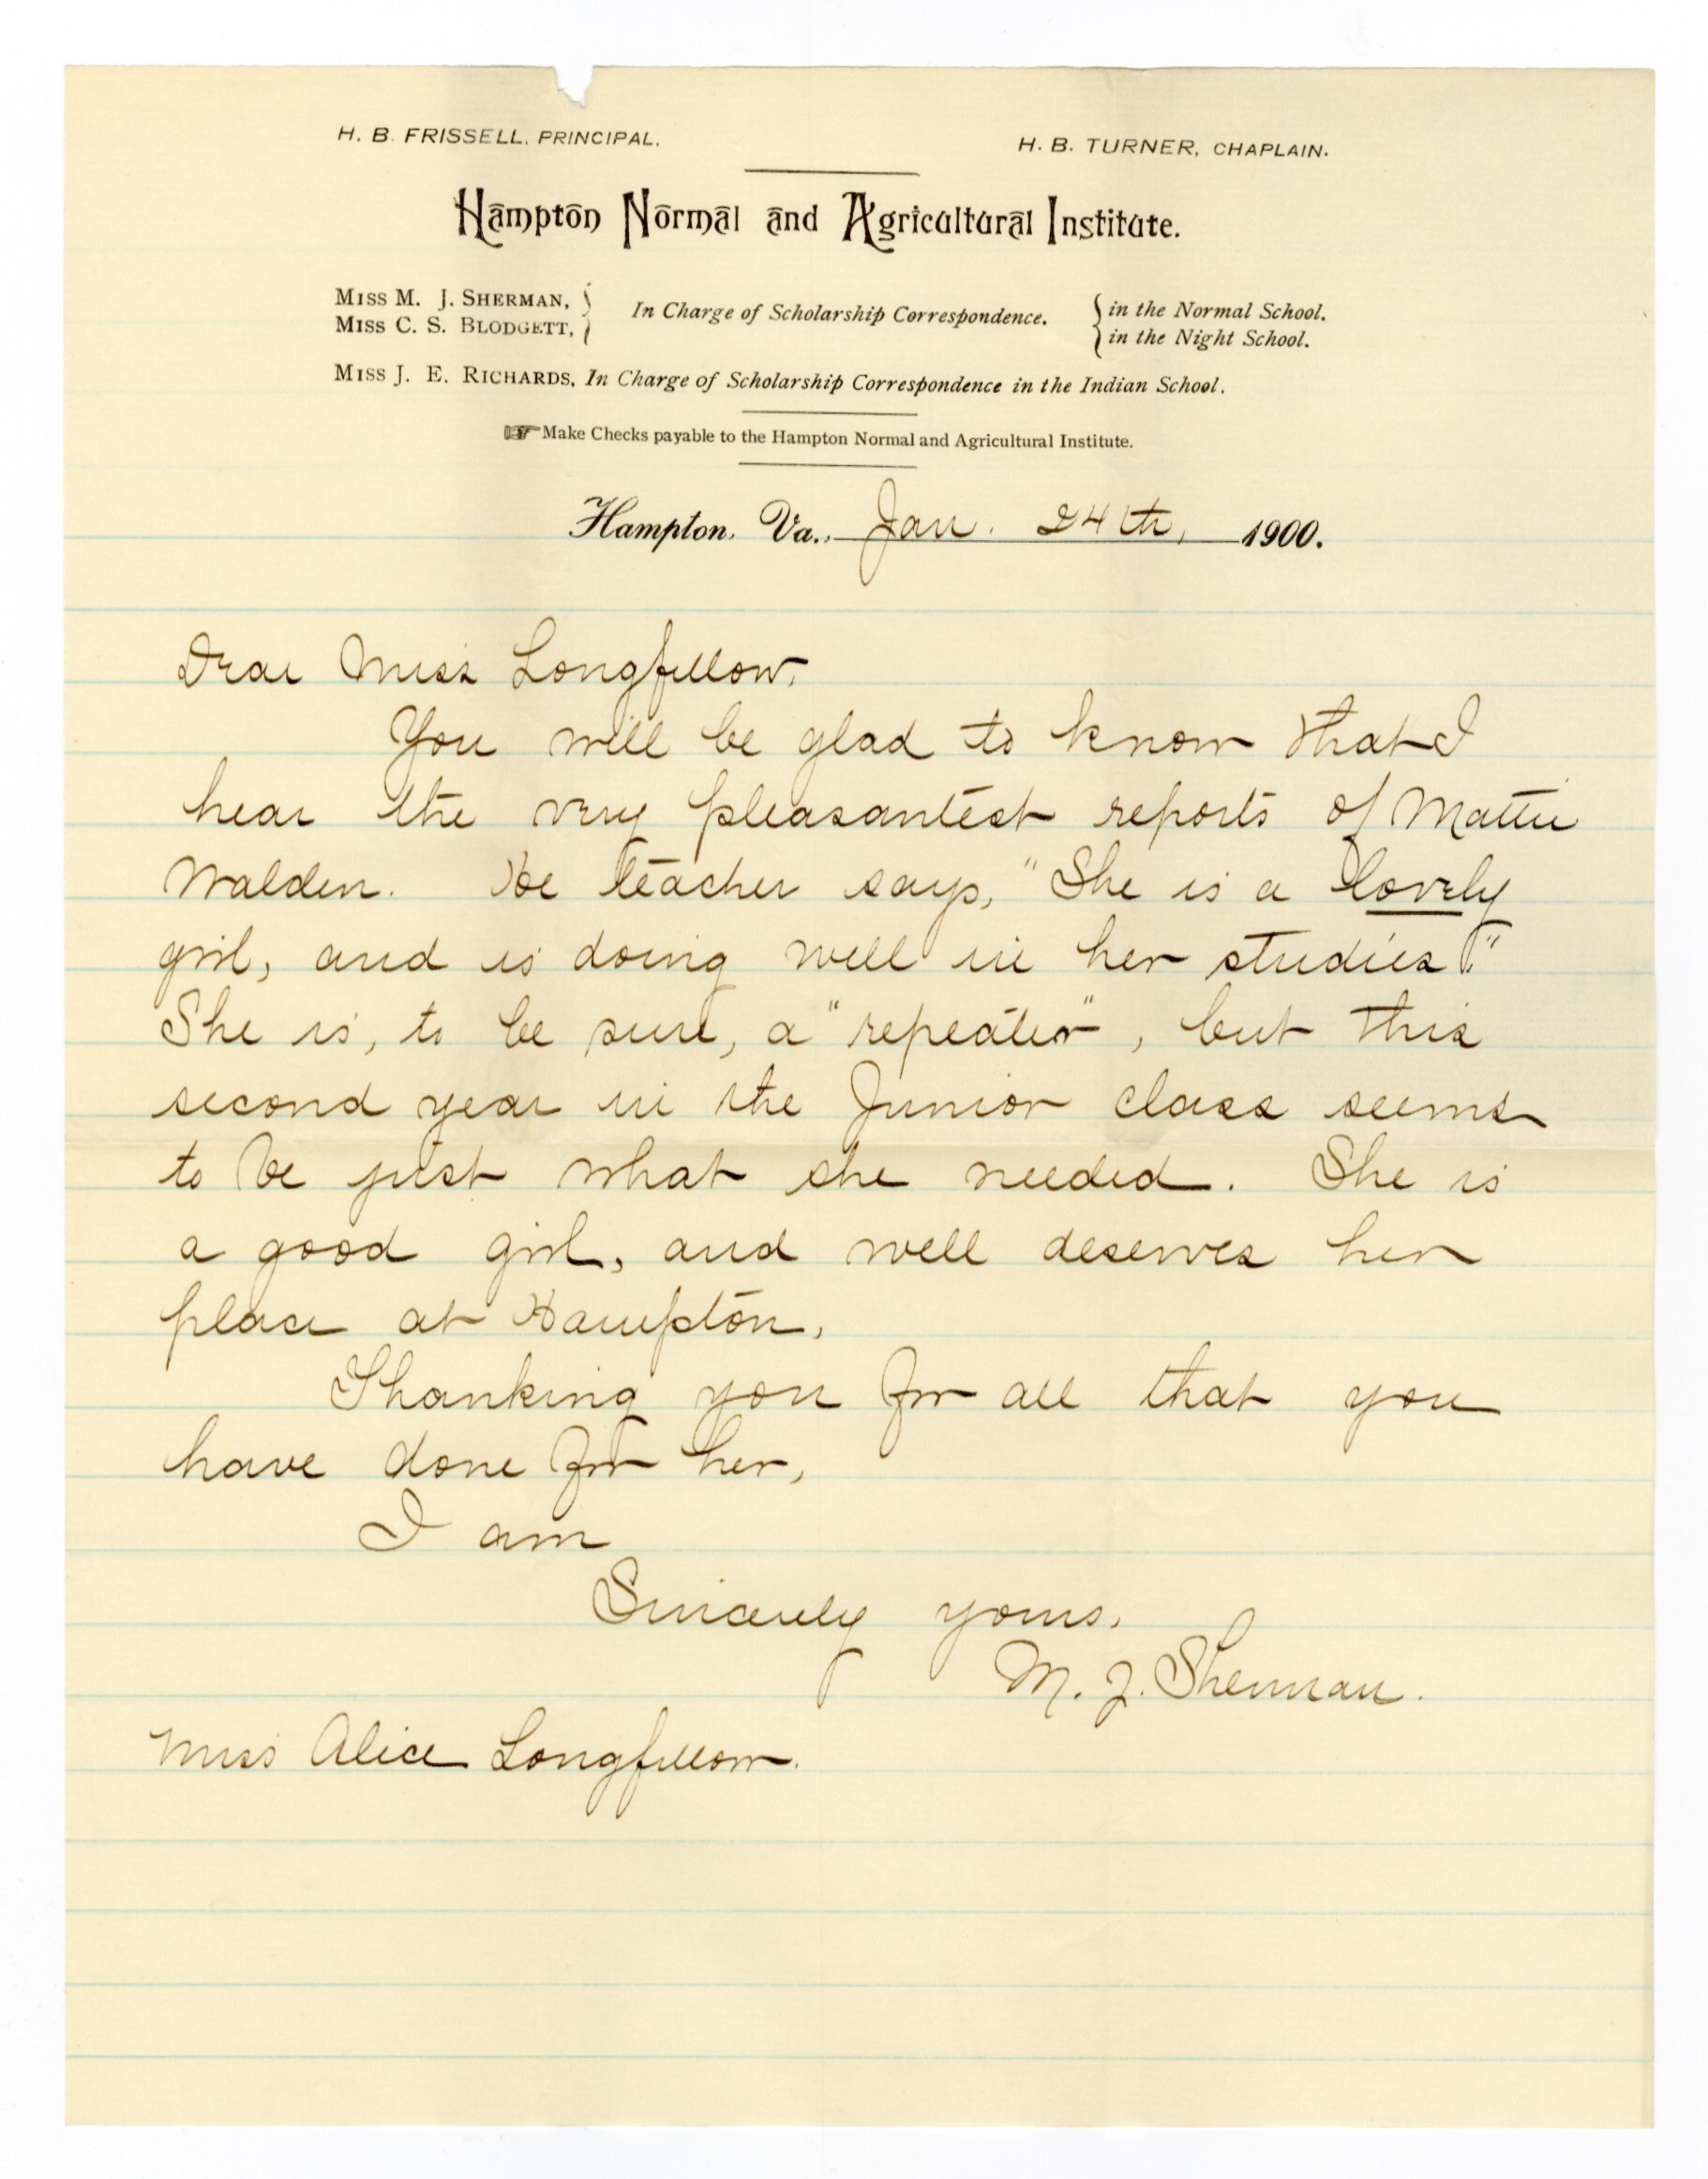 H. B. FRISSELL, PRINCIPAL.
H. B. TURNER, CHAPLAIN.
Hampton Normal and Agricultural Institute.
MISS M. J. SHERMAN, } In Charge of Scholarship Correspondence. { in the Normal School.
MISS C. S. BLODGETT, } { in the Night School.
MISS J. E. RICHARDS, In Charge of Scholarship Correspondence in the Indian School.
☞ Make Checks payable to the Hampton Normal and Agricultural Institute.
Hampton, Va., Jan. 24th, 1900.
Dear Miss Longfellow,
You will be glad to know that I
hear the very pleasantest reports of Mattie
Walden. Her teacher says, "She is a lovely
girl, and is doing well in her studies."
She is, to be sure, a "repeater", but this
second year in the Junior class seems
to be just what she needed. She is
a good girl, and well deserves her
place at Hampton.
Thanking you for all that you
have done for her,
I am
Sincerely yours,
M. J. Sherman.
Miss Alice Longfellow.